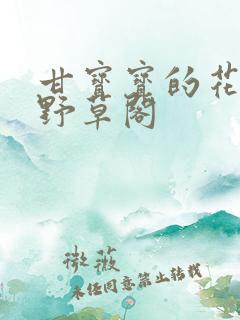 甘寳寳的花
野草閣
微薇
未经同意禁止转载